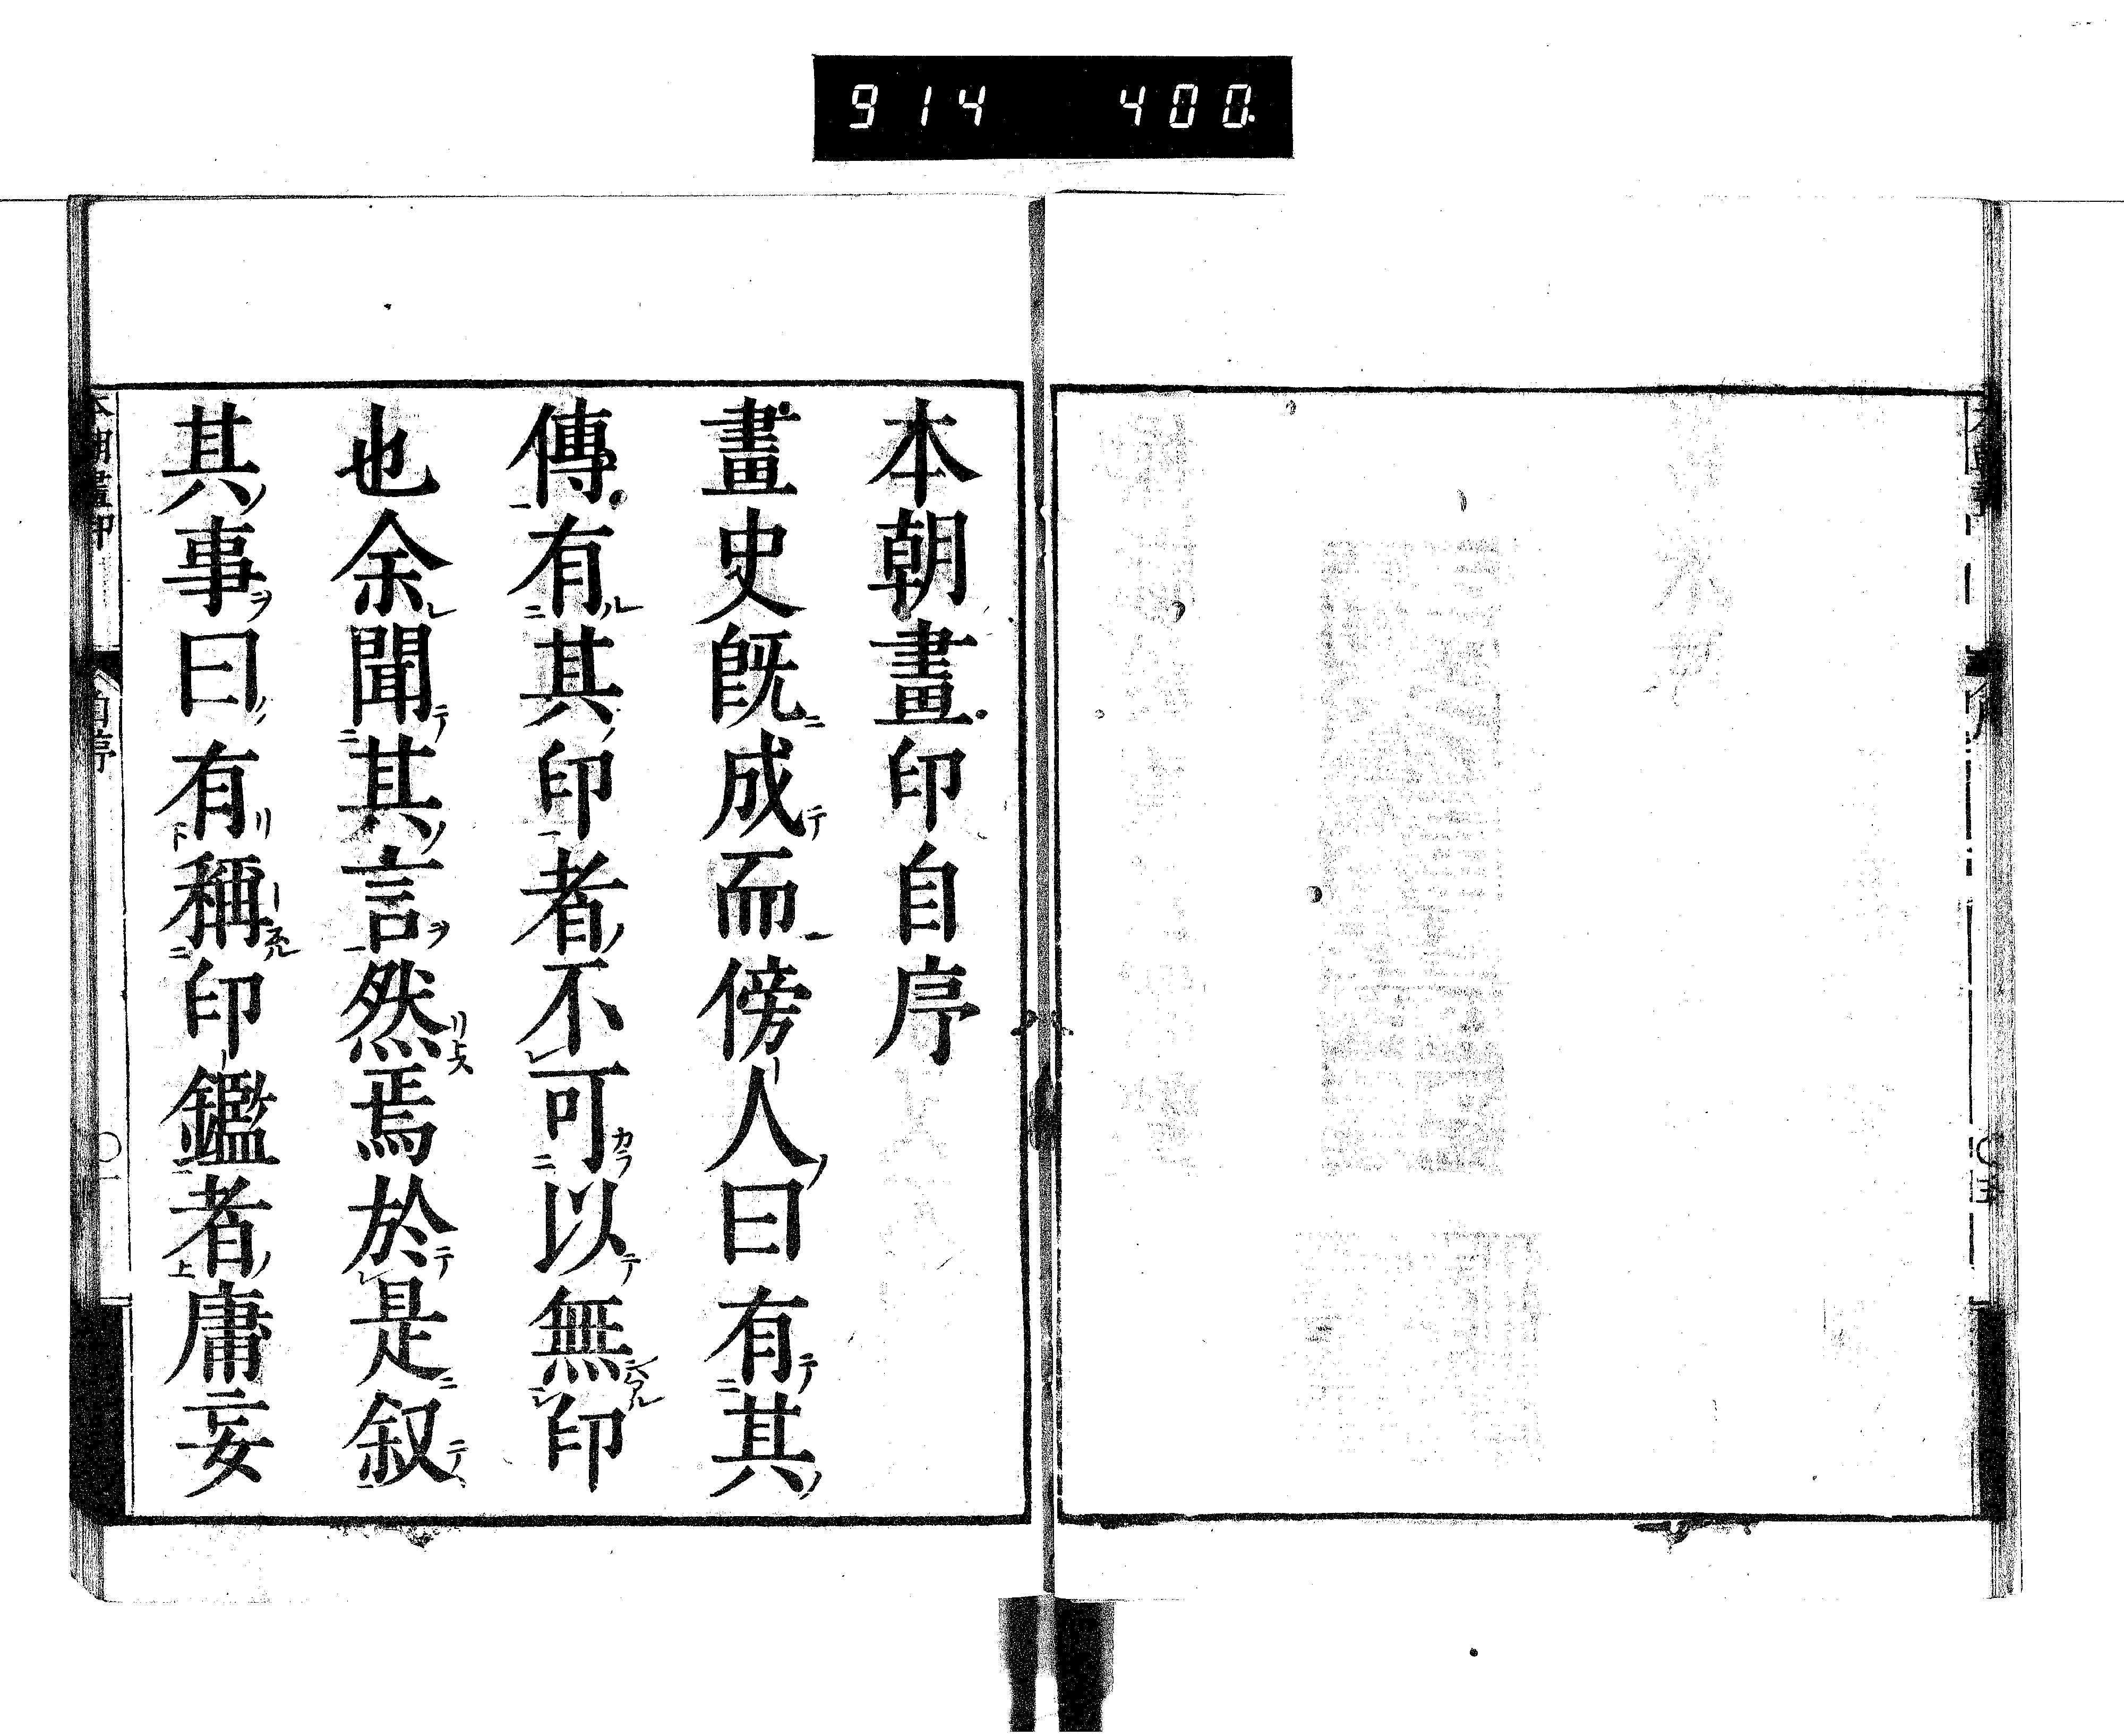 914 400
本朝畫印自序
畫史既成而傍人曰有其
傳有其印者不可以無印
也余聞其言然焉於是叙
其事曰有稱印鑑者庸妄
本朝畫印 自序 〇一